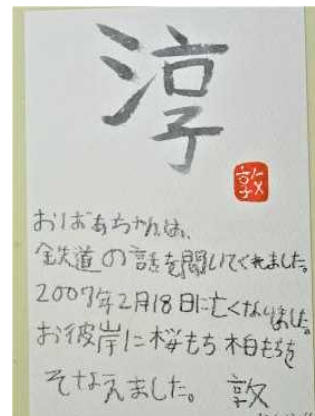 淳
敦
おばあちゃんは、
鉄道の話を聞いてくれました。
2007年2月18日に亡くなりました。
お彼岸に桜もち柏もちを
そなえました。 敦